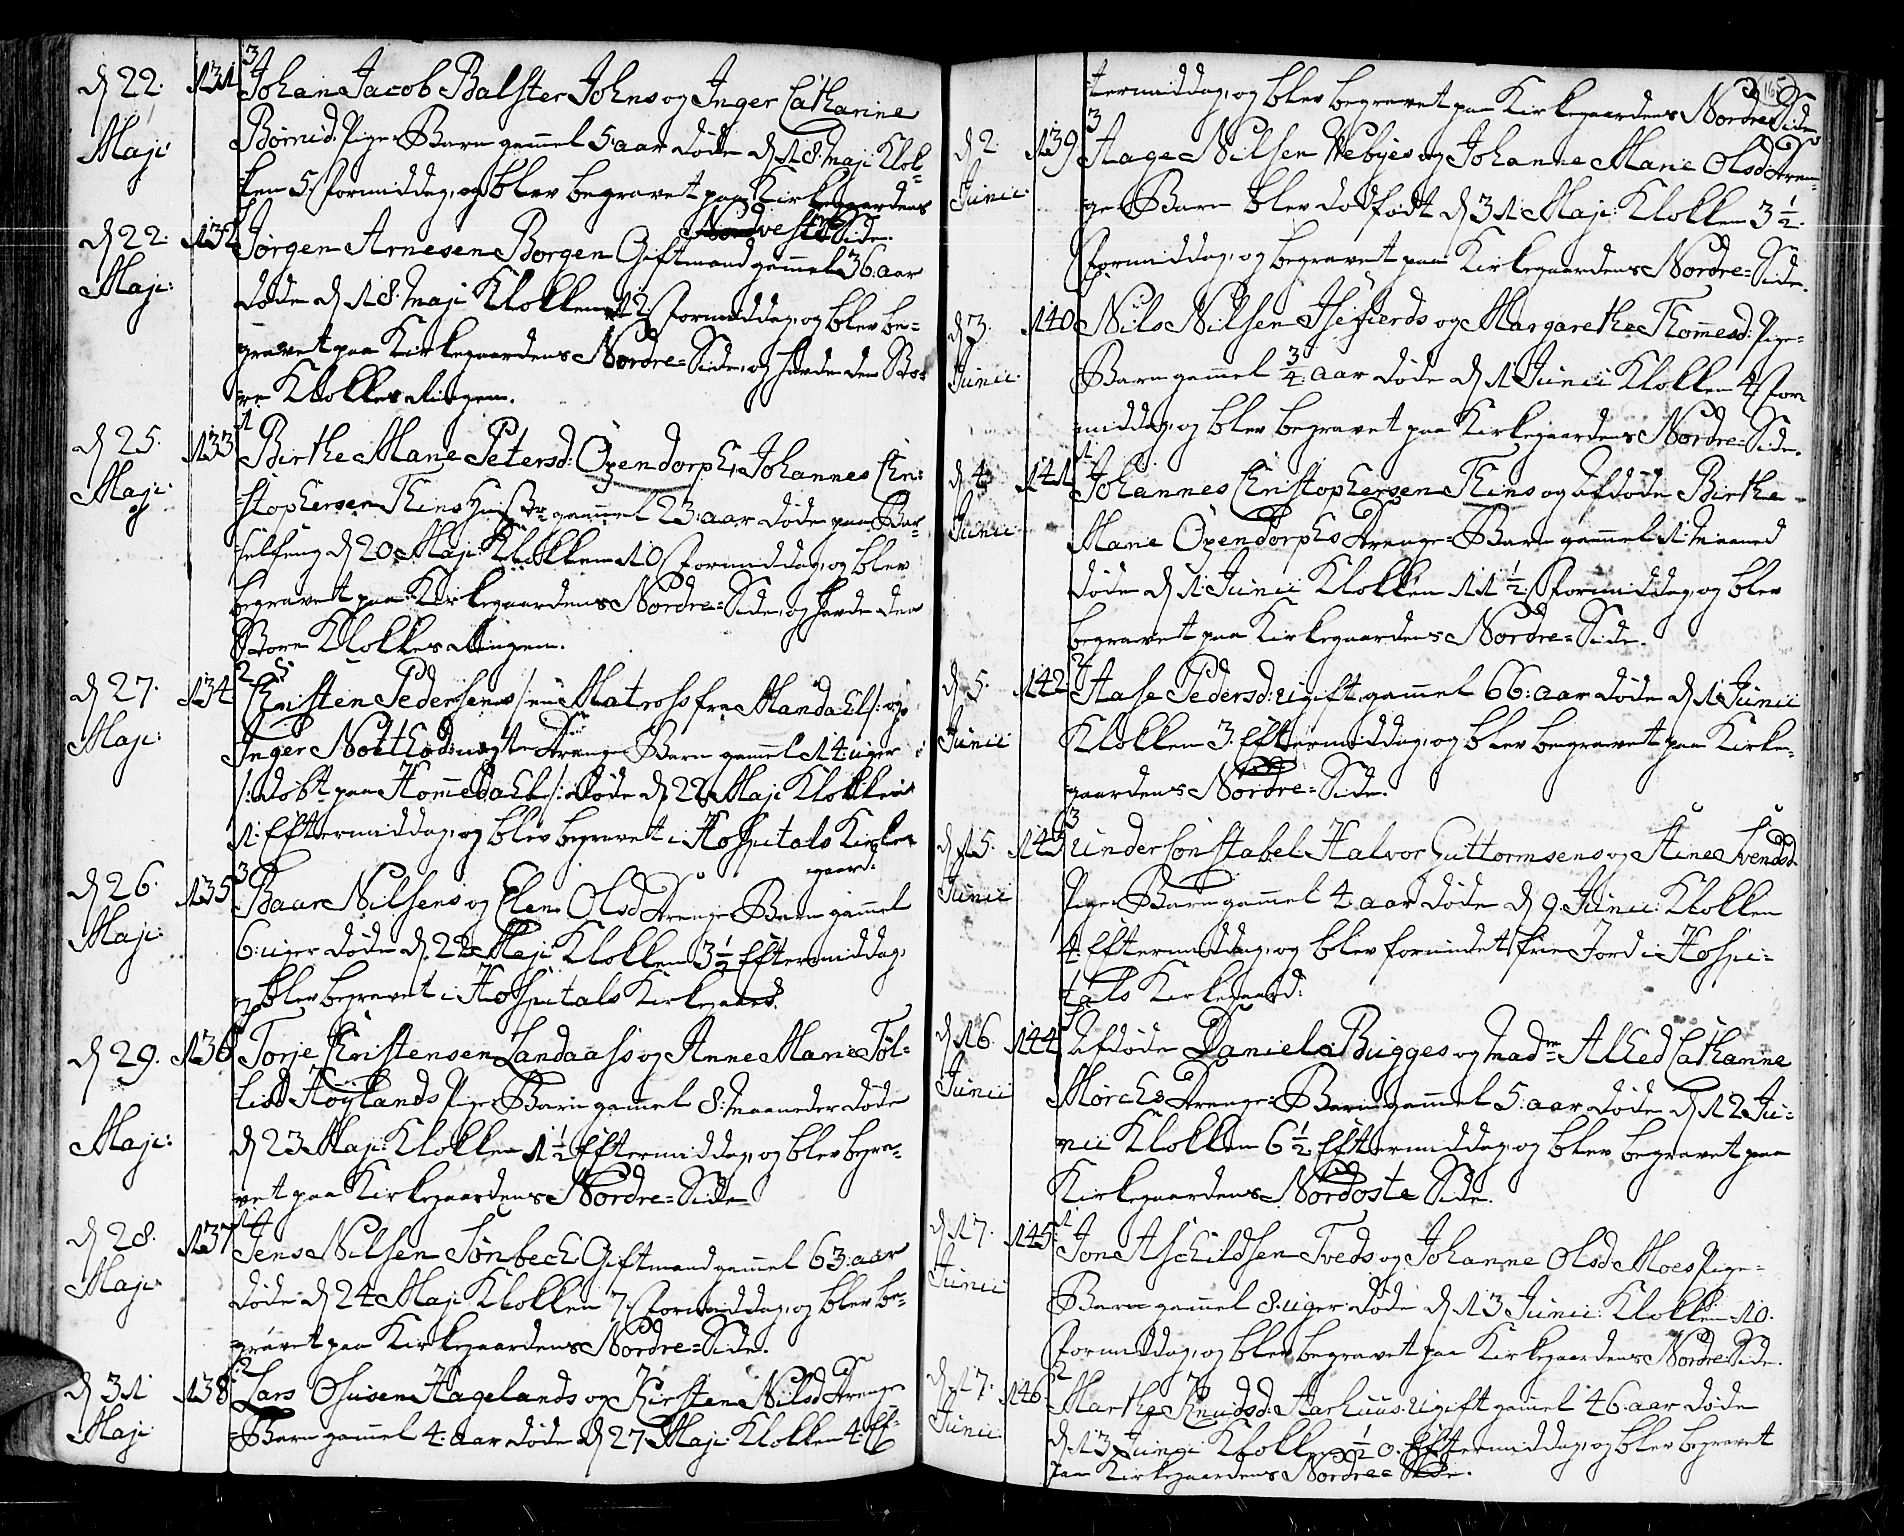 d 22. 131 3 Johan Jacob Balster Johns og Inger Catharine
Maji Børnis d: Pige-Barn gamel 5: aar døde d 18 Maji Klok-
ken 5 Formiddag, og blev begravet paa Kirkegaardens
Nordvestre Side.
d 22. 132 Jørgen Arnesen Borgen Giftmand gamel 36. aar
Maji: døde d 18. Maji Klokken 12 Formiddag, og blev be-
gravet paa Kirkegaardens Nordre-Side, og havde den Sto-
re Klokkes Ringen.
d 25. 133 1 Birthe Marie Petersd: Oxendorph, Johannes Chri-
Maji: stophersen Thins Hustr. gamel 23: aar døde paa Bar-
selseng d 20 Maji Klokken 10 Formiddag, og blev
begravet paa Kirkegaardens Nordre-Side, og havde den
Store Klokkes Ringen.
d 27. 134 2 Christen Pedersens /: en Matross fra Mandahl :/ og
Maji: Inger Nolthod: uegte Drenge Barn gamel 14 uger
/: døbt paa Hommedahl :/ døde d. 22 Maji Klokken
1. Eftermiddag, og blev begravet i Hospitals Kirke-
gaard:
d 26. 135 3 Baar Nilsens og Elen Olsd Drenge Barn gamel
Maji: 6: uger døde d. 22 Maji Klokken 3 1/2 Eftermiddag,
og blev begravet i Hospitals Kirkegaard.
d 29. 136 Torje Christensen Landaass og Anne Marie Tøl-
lisd Høylands Pige Barn gamel 8. Maaneder døde
Maji: d 23 Maji Klokken 1 1/2 Eftermiddag, og blev begra-
vet paa Kirkegaardens Nordre-Side
d 28. 137 1 Jens Nilsen Sønbech Giftmand gamel 63: aar
Maji: døde d 24 Maji Klokken 7. Formiddag, og blev be-
gravet paa Kirkegaardens Nordre-Side.
d 31 138 2 Lars Osuven Hagelands og Kirsten Nilsd Drenge
Maji Barn gamel 4: aar døde d 27 Maji Klokken 4: Ef-
165
termiddag, og blev begravet paa Kirkegaardens Nordre Side
d 2. 139 3 Aage Nilsen Vebyes og Johanne Marie Olsd Dren-
Junii: ge Barn blev dødfødt d 31 Maji: Klokken 3 1/2.
Formiddag, og begravet paa Kirkegaardens Nordre-Side.
d 3. 140 Nils Nilsen Isefierds og Margarethe Thomesd: Pige-
Junii. Barn gamel 3/4: aar døde d 1 Junii Klokken 4 For
middag, og blev begravet paa Kirkegaardens Nordre-Side.
d 4. 141 1 Johannes Christophersen Thins og Afdøde Birthe
Junii Marie Oxendorphs Drenge-Barn gamel 1: Maaned
døde d 1 Junii Klokken 11 1/2 Formiddag, og blev
begravet paa Kirkegaardens Nordre-Side.
d 5. 142 2 Aase Pedersd: ugift gamel 66: aar døde d 1 Junii
Junii Klokken 3. Eftermiddag, og blev begravet paa Kirke-
gaardens Nordre-Side.
d 15. 143 3 Under Constabel Halvor Guttormsens og Stine Svendsd:
Junii Pige Barn gamel 4. aar døde d 9 Junii: Klokken
4 Eftermiddag, og blev forundet frie Jord i Hospi-
tals Kirkegaard:
d 16. 144 Afdøde Daniel Bugges og Madm Alhed Catharine
Junii Mørchs Drenge-Barn gamel 5: aar døde d 12 Ju-
nii Klokken 6 1/2 Eftermiddag, og blev begravet paa
Kirkegaardens Nordoste Side.
d 17. 145 1 Jon Aschildsen Tveds og Johanne Olsd Moes Pige-
Junii Barn gamel 8: uger døde d 13 Junii: Klokken 10.
Formiddag, og blev begravet paa Kirkegaardens Nordre-Side.
d 17. 146 2 Marthe Knudsd: Aarhuus. ugift gamel 46. aar døde
Junii d 13 Junii Klokken Eftermiddag, og blev begravet
paa Kirkegaardens Nordre Side.